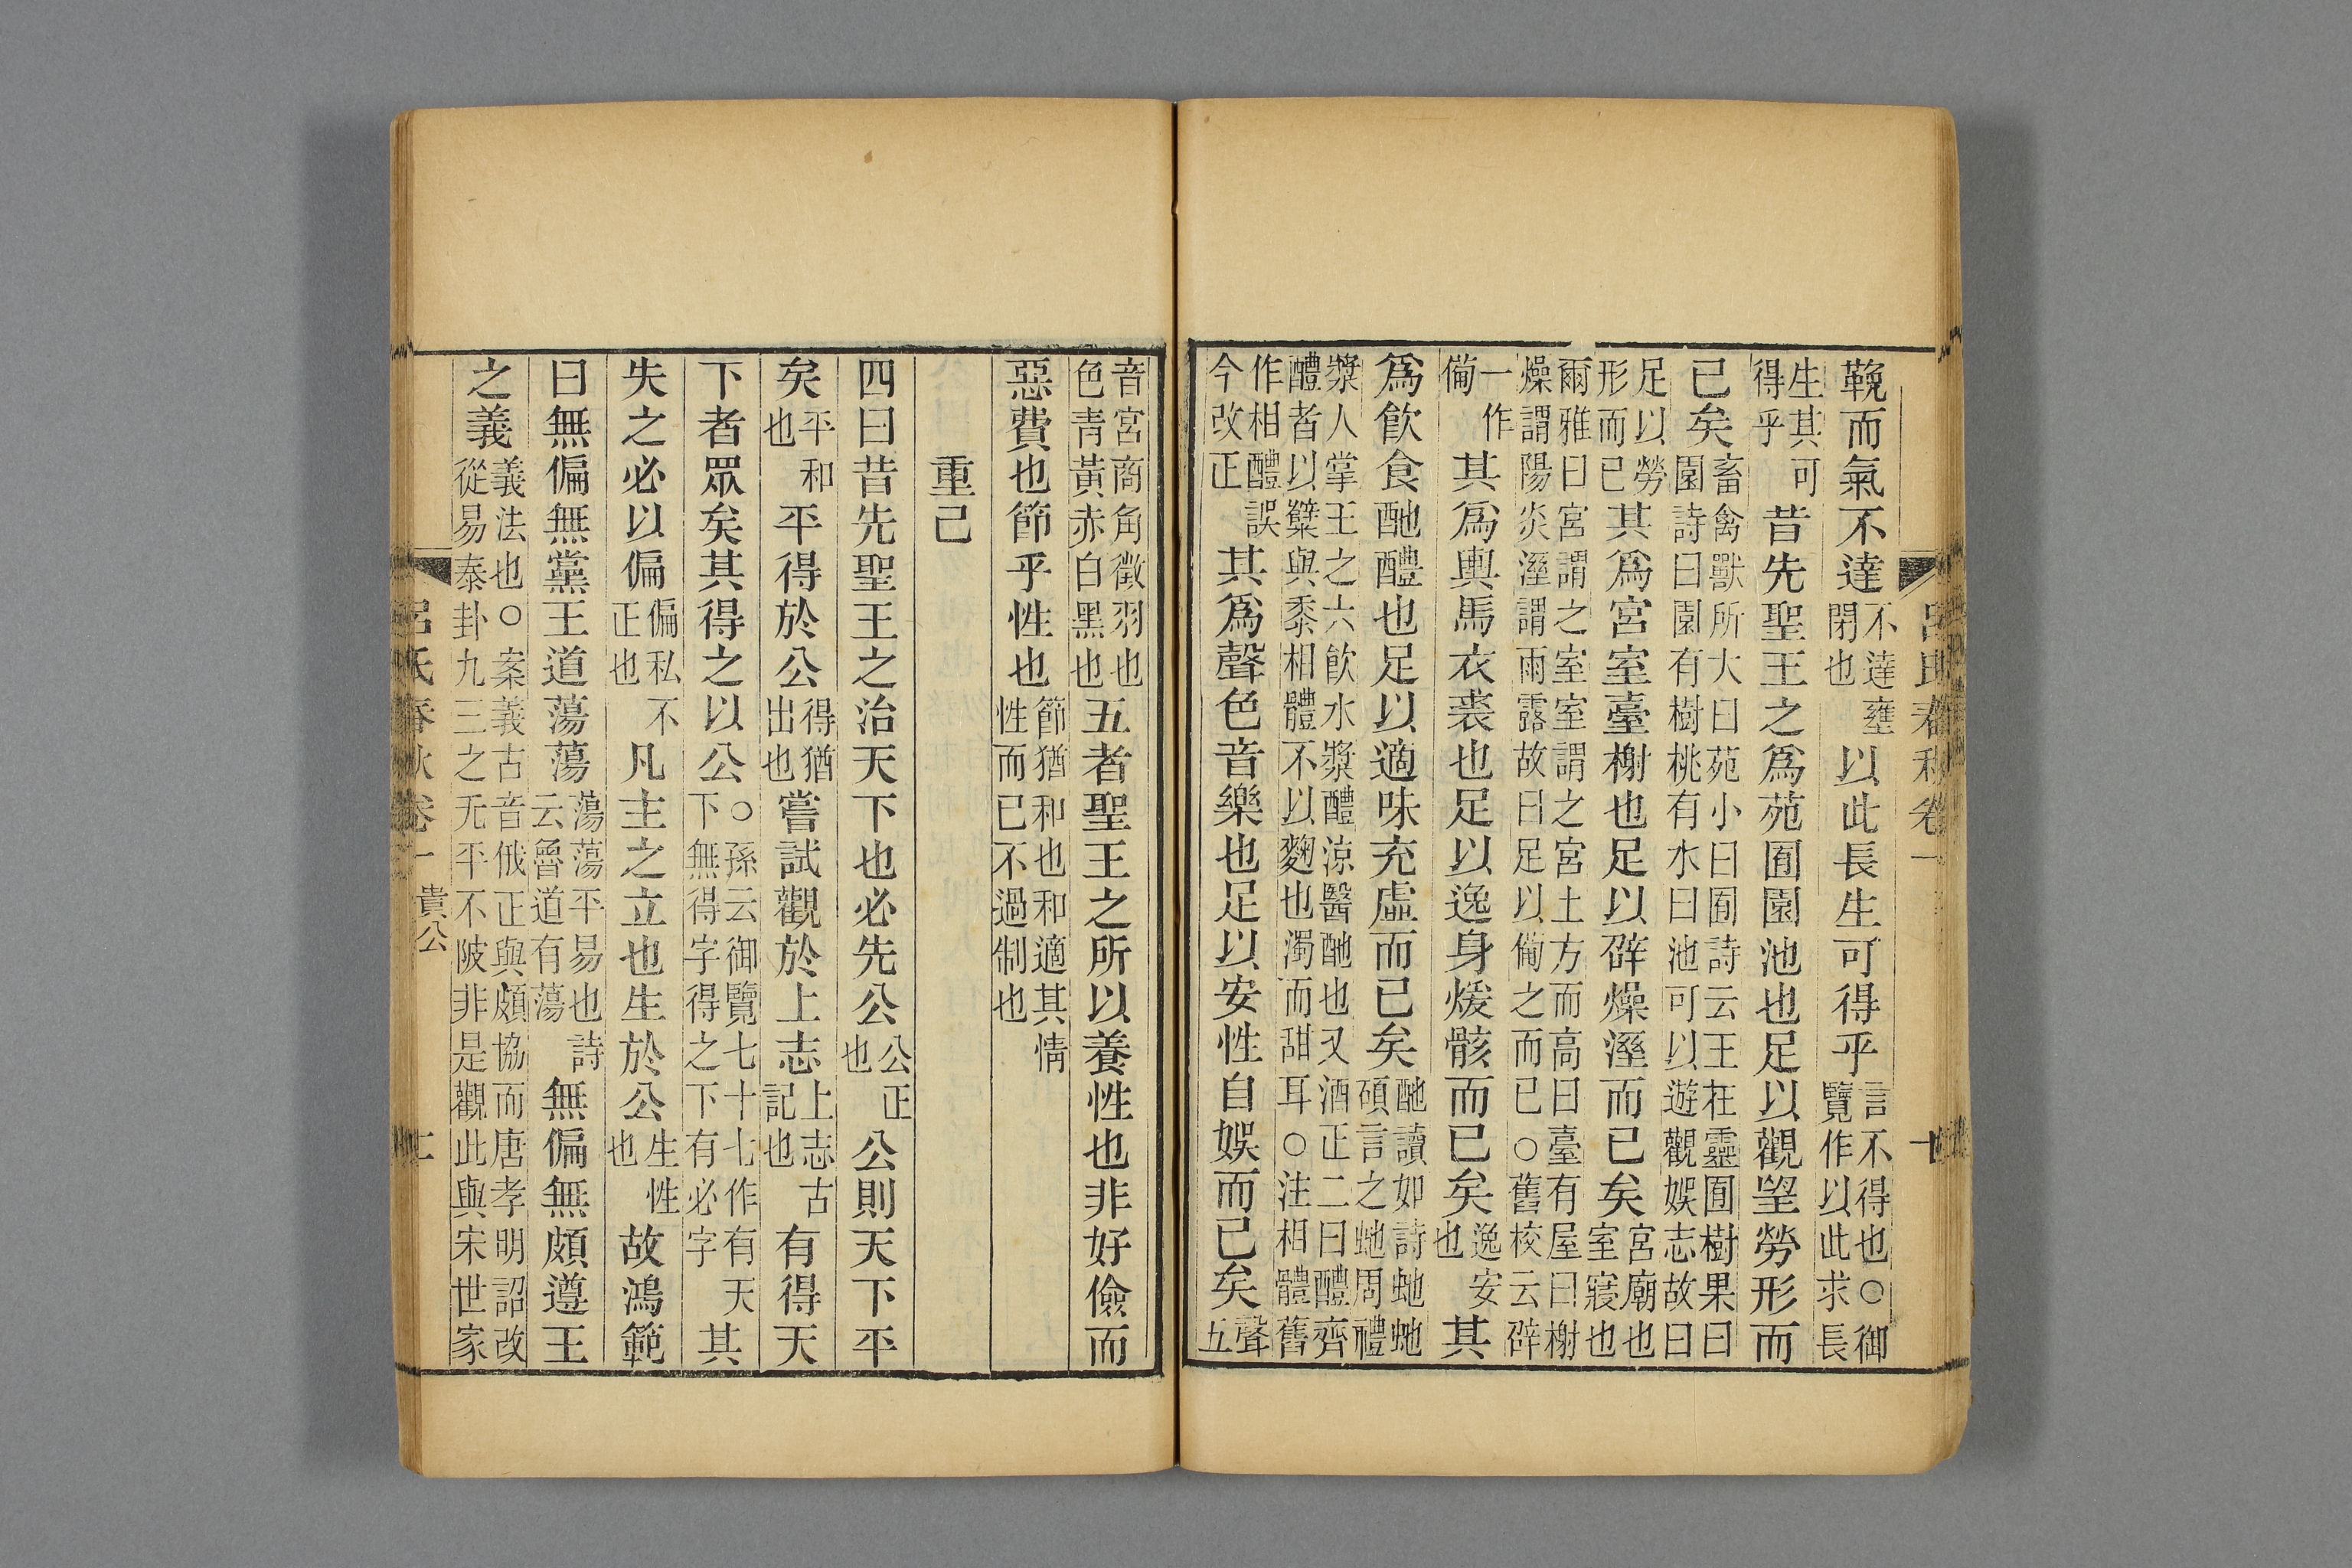 呂氏春秋卷一
鞔而氣不達不達壅閉也以此長生可得乎言不得也○御覽作以此求長
生其可得乎昔先聖王之爲苑囿園池也足以觀望勞形而
已矣畜禽獸所大曰苑小曰囿詩云王在靈囿樹果曰園詩曰園有樹桃有水曰池可以遊觀娛志故曰
足以勞形而已其爲宮室臺榭也足以辟燥溼而已矣宮廟也室寢也
爾雅曰宮謂之室室謂之宮土方而高曰臺有屋曰榭燥謂陽炎溼謂雨露故曰足以備之而已○舊校云辟
一作備其爲輿馬衣裘也足以逸身煖骸而已矣逸安也其
爲飲食酏醴也足以適味充虛而已矣酏讀如詩虵虵碩言之虵周禮
漿人掌王之六飲水漿醴涼醫酏也又酒正二曰醴齊醴者以糱與黍相體不以麴也濁而甜耳○注相體舊
作相醴誤今改正其爲聲色音樂也足以安性自娛而已矣聲五
音宮商角徵羽也色青黃赤白黑也五者聖王之所以養性也非好儉而
惡費也節乎性也節猶和也和適其情性而已不過制也
重己
四曰昔先聖王之治天下也必先公公正也公則天下平
矣平和也平得於公得猶出也嘗試觀於上志上志古記也有得天
下者眾矣其得之以公○孫云御覽七十七作有天下無得字得之下有必字其
失之必以偏偏私不正也凡主之立也生於公生性也故鴻範
曰無偏無黨王道蕩蕩蕩蕩平易也詩云魯道有蕩無偏無頗遵王
之義義法也○案義古音俄正與頗協而唐孝明詔改從易泰卦九三之无平不陂非是觀此與宋世家
呂氏春秋卷一 貴公